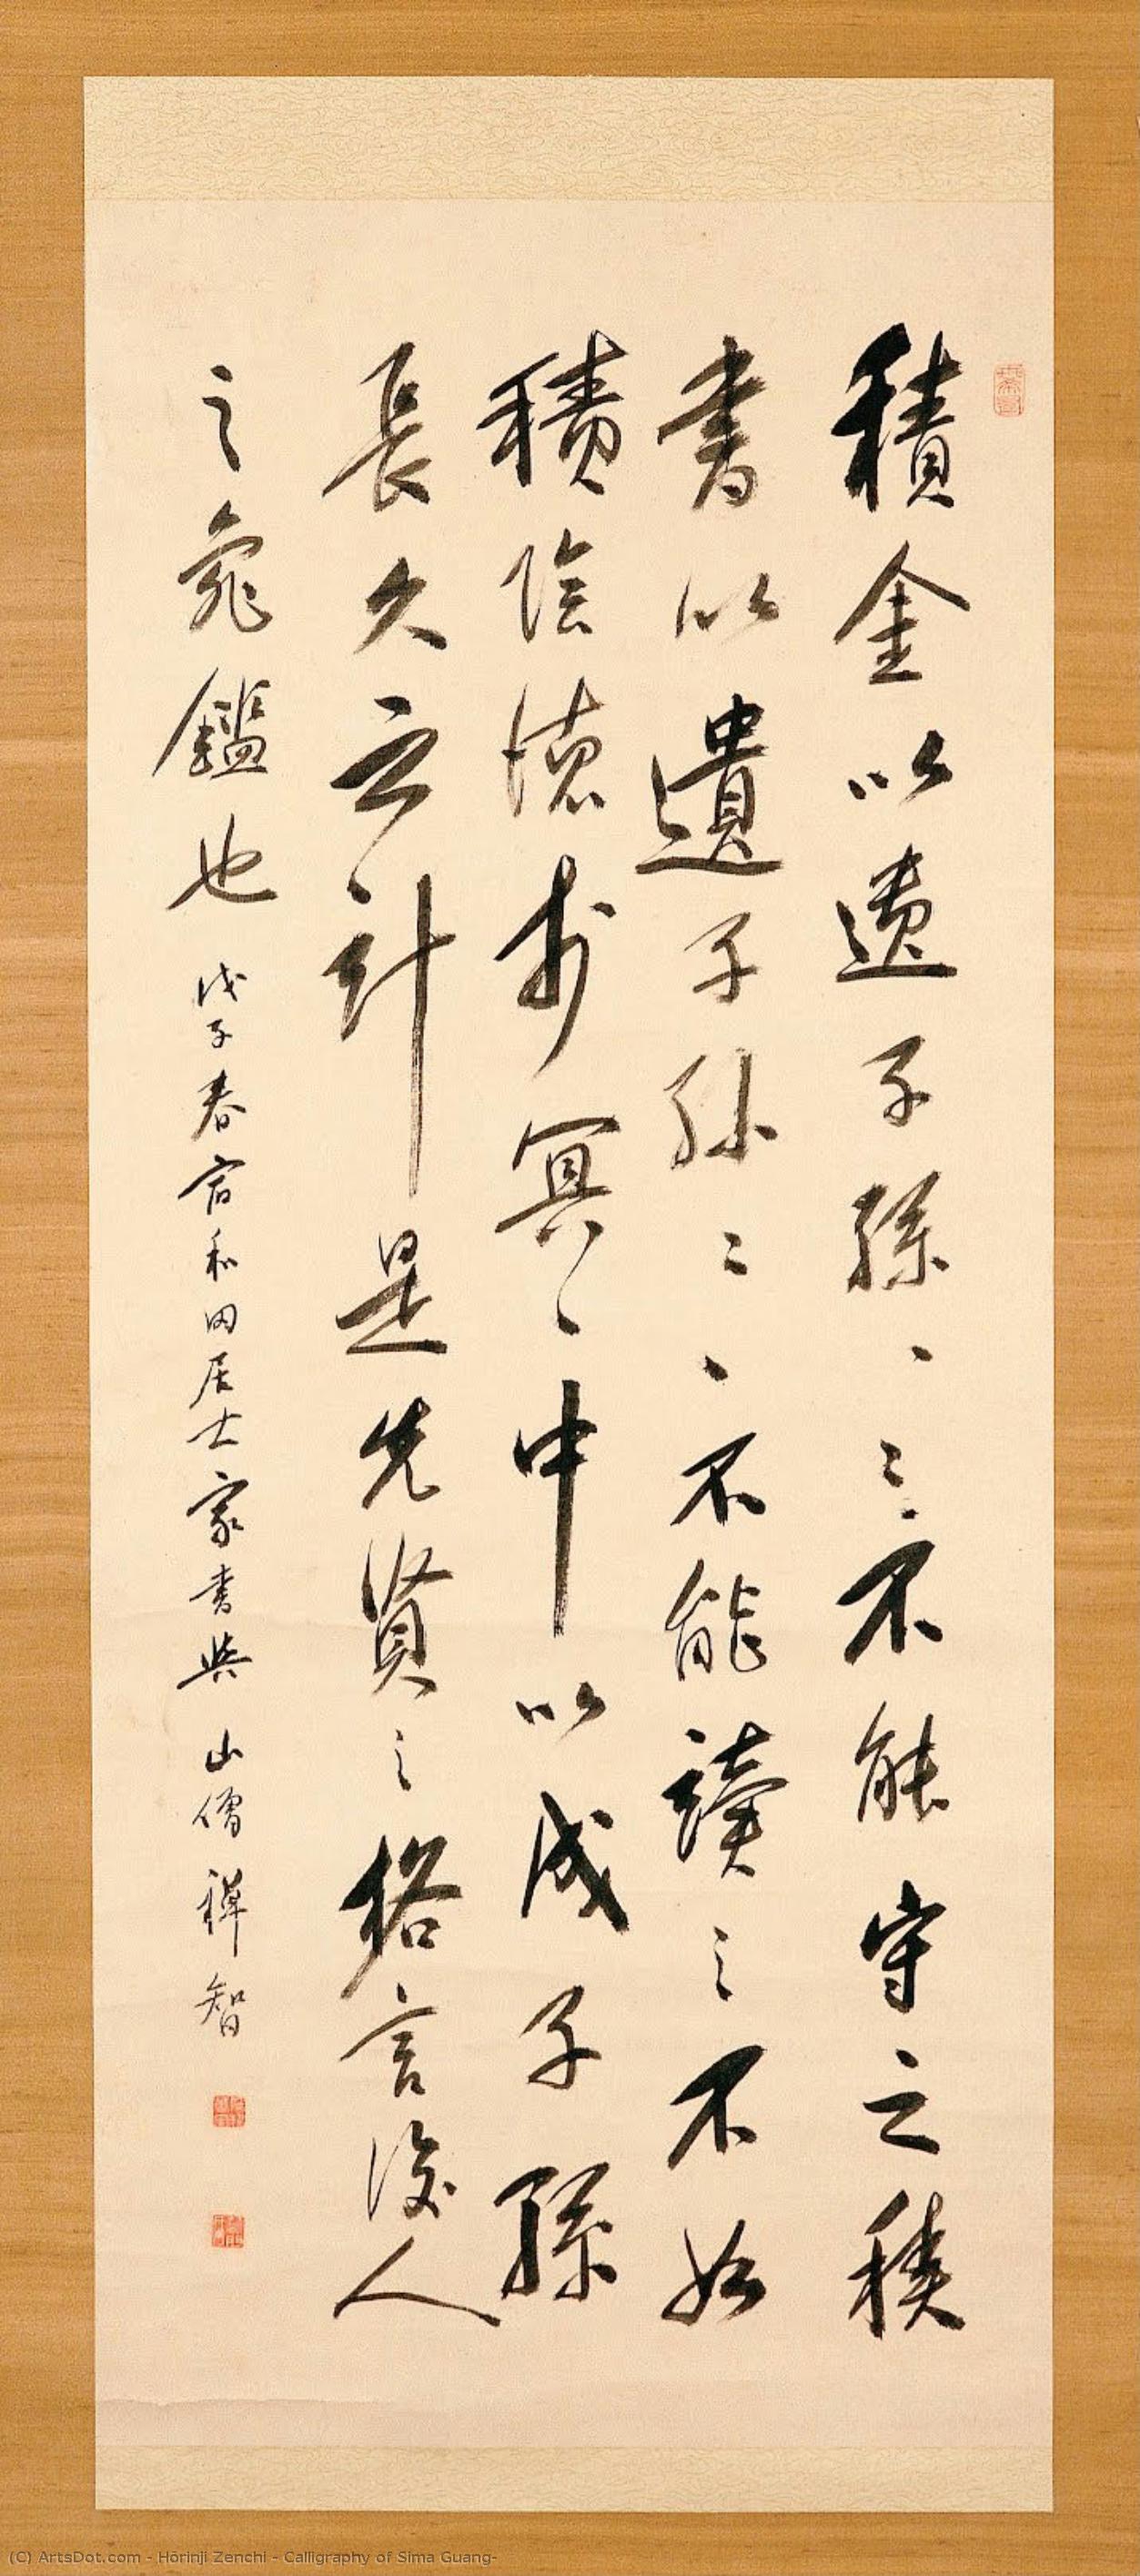 積金以遺子孫〻〻不能守之積
書以遺子孫〻〻不能讀之不如
積陰德於冥〻中以成子孫
長久之計是先賢之格言後人
之龜鑑也 戊子春宿和田居士家書與 山僧禪智
(C) ArtsDot.com - Hōrinji Zenchi - Calligraphy of Sima Guang-